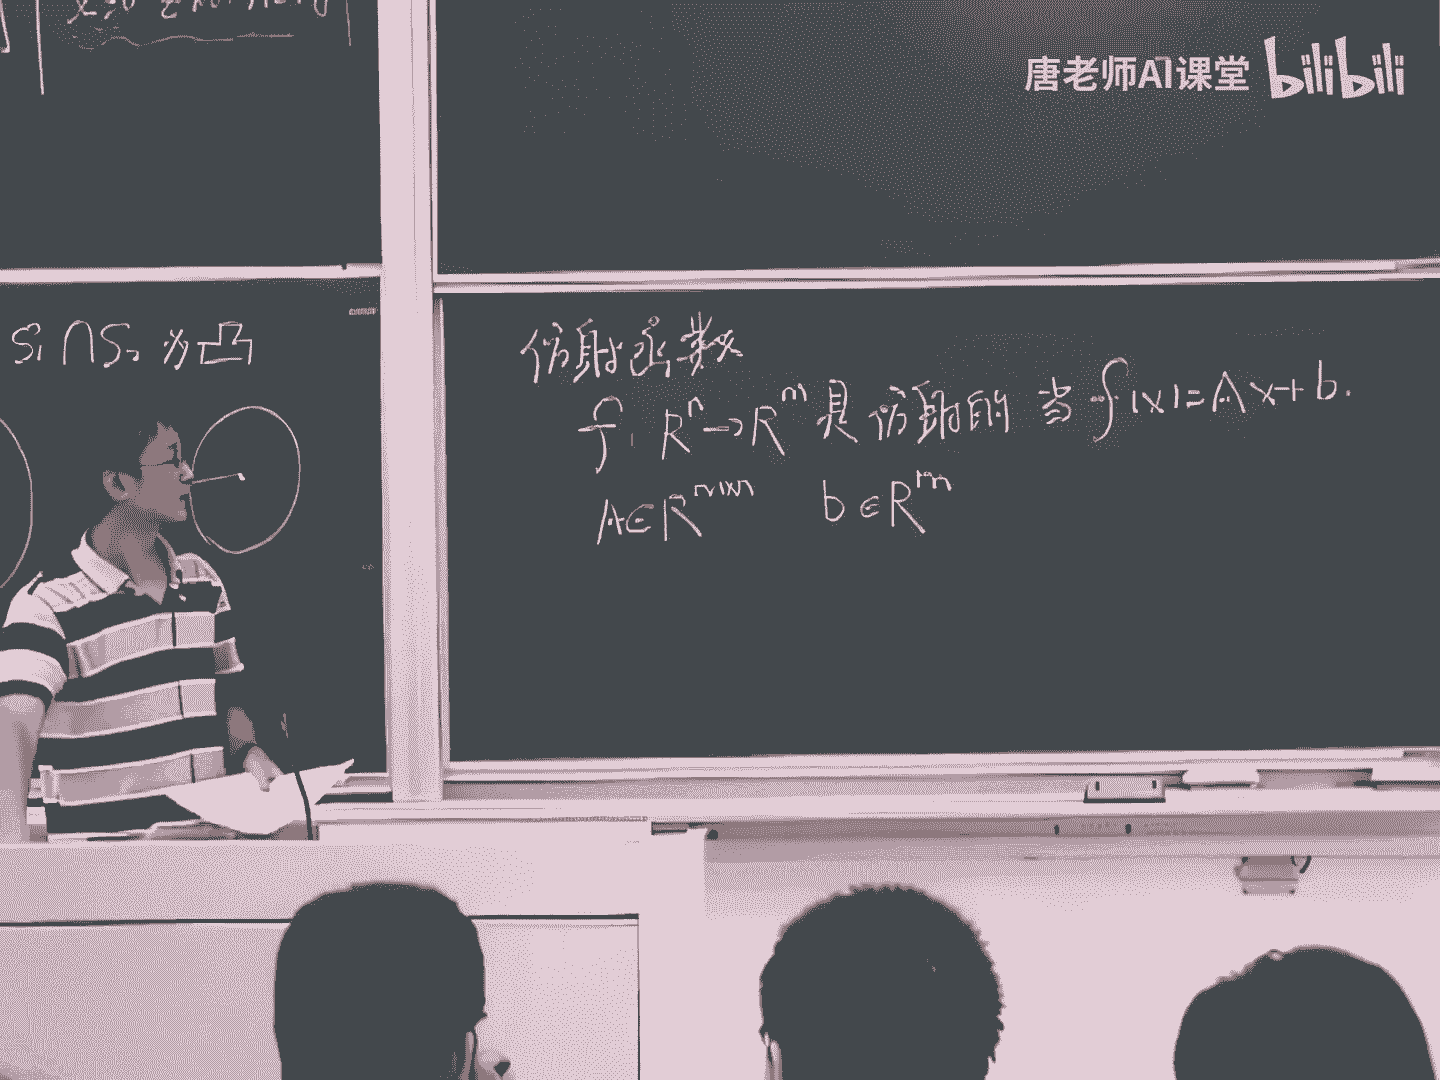 唐老师AI课堂 bilibili
S₁∩S₂ 为凸
仿射函数
f: Rⁿ→Rᵐ 是仿射的 当 f(x)=Ax+b.
A∈Rᵐˣⁿ b∈Rᵐ